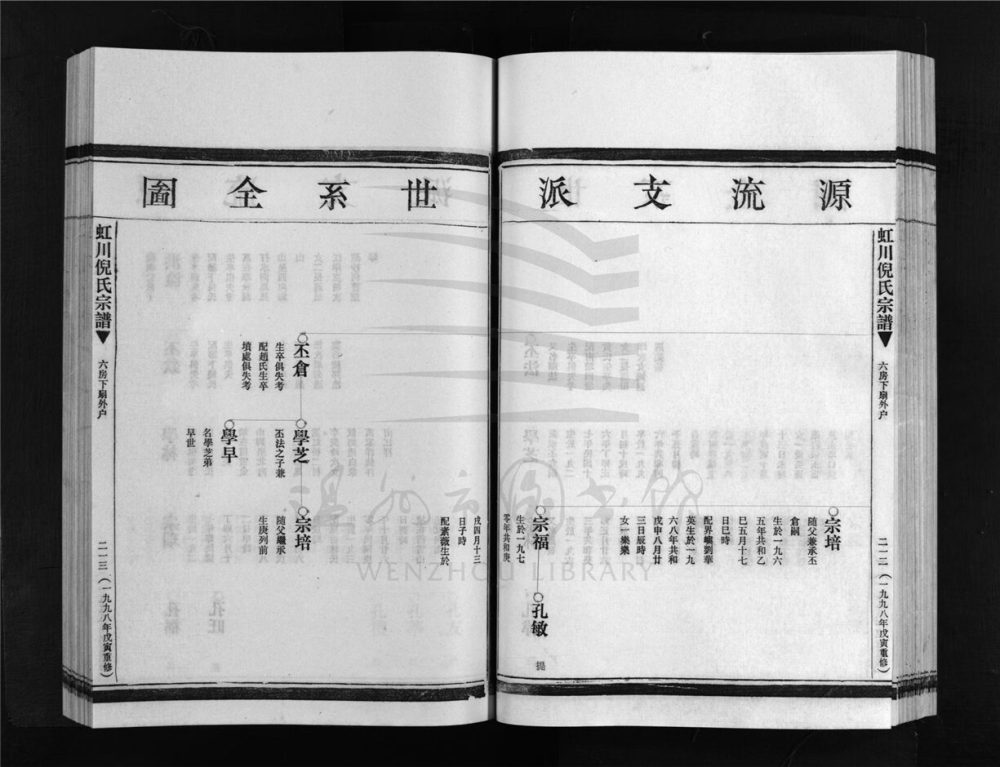 源流支派
虹川倪氏宗譜
六房下扇外户
二一二(一九九八年戊寅重修)
宗培
随父兼承丕
倉嗣
生於一九六
五年共和乙
巳五月十七
日巳時
配界嶼劉華
英生於一九
六八年共和
戊申八月廿
三日辰時
女一樂樂
宗福
生於一九七
零年共和庚
孔敏
提
世系全圖
戌四月十三
日子時
配素薇生於
丕倉
生卒俱失考
配趙氏生卒
墳處俱失考
學芝
丕法之子兼
宗培
随父繼承
生庚列前
學早
名學芝弟
早世
虹川倪氏宗譜
六房下扇外户
二一三(一九九八年戊寅重修)
温州市圖书館
WENZHOU LIBRARY